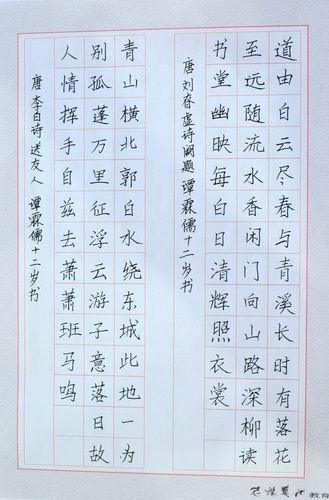 道由白云尽春与青溪长时有落花
至远随流水香闲门向山路深柳读
书堂幽映每白日清辉照衣裳
唐刘眘虚诗阙题 谭霖儒十二岁书
青山横北郭白水绕东城此地一为
别孤蓬万里征浮云游子意落日故
人情挥手自兹去萧萧班马鸣
唐李白诗送友人 谭霖儒十二岁书
教育